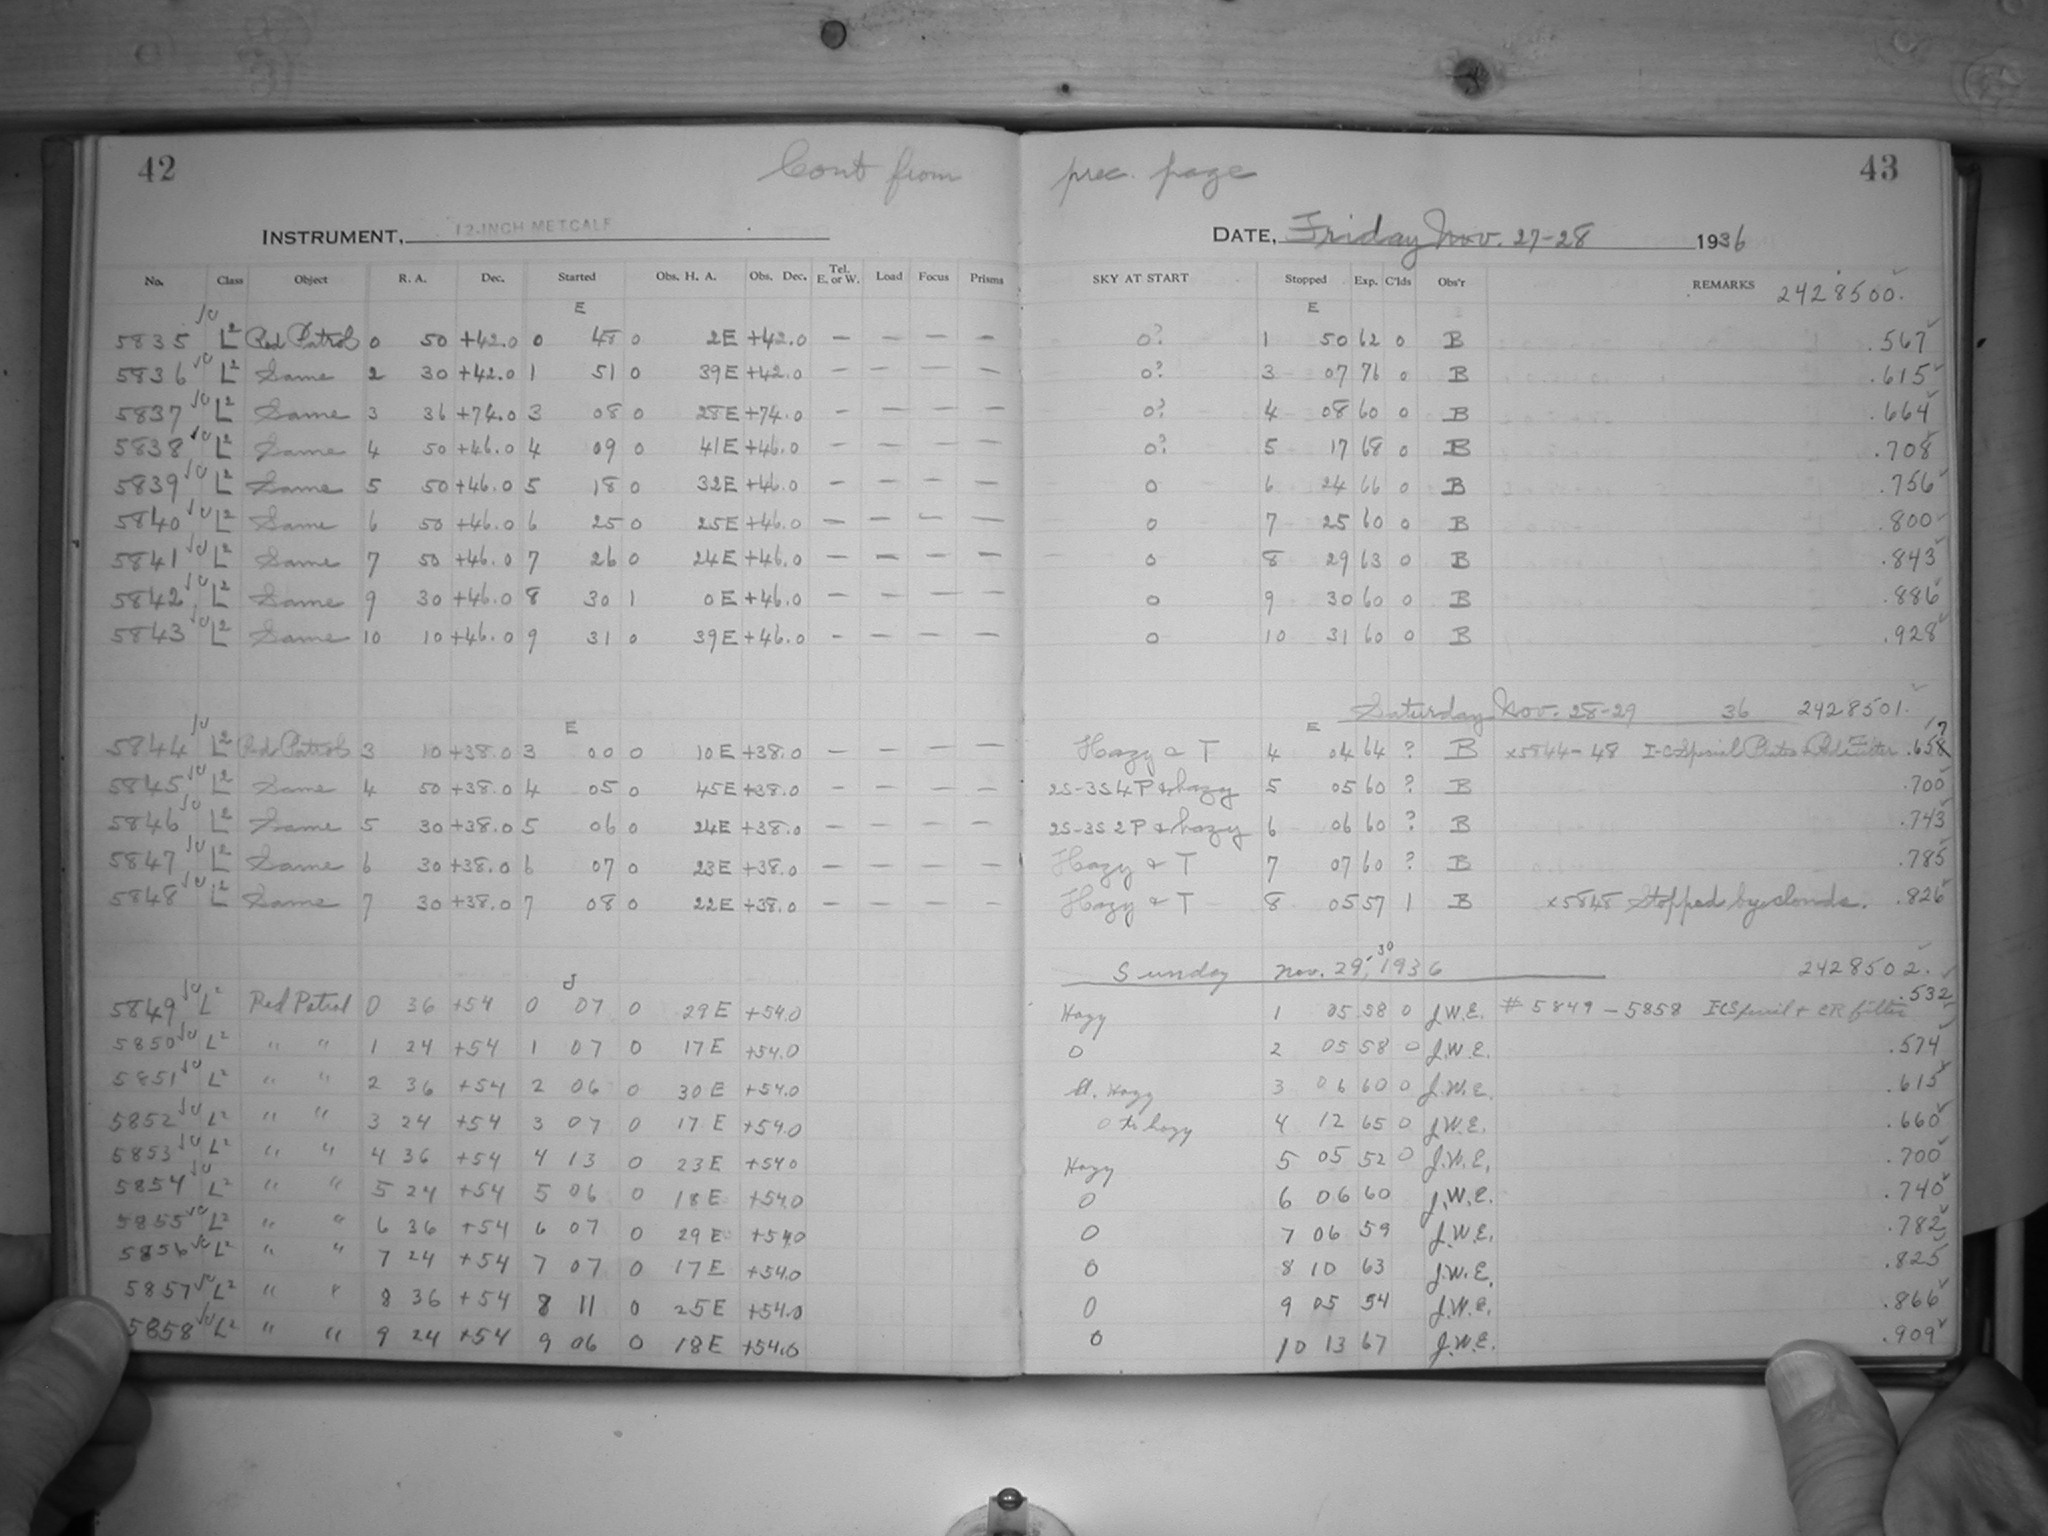 42 Cont from prec. page 43
INSTRUMENT, 12-INCH METCALF DATE, Friday Nov. 27-28 1936
No. Class Object R. A. Dec. Started Obs. H. A. Obs. Dec. Tel. E. or W. Load Focus Prisms SKY AT START Stopped Exp. C'lds Obs'r REMARKS 2428500.
E E
5835 L² Red Patrol 0 50 +42.0 0 48 0 2E +42.0 — — — — 0? 1 50 62 0 B .567
5836 L² Same 2 30 +42.0 1 51 0 39E +42.0 — — — — 0? 3 07 76 0 B .615
5837 L² Same 3 36 +74.0 3 08 0 28E +74.0 — — — — 0? 4 08 60 0 B .664
5838 L² Same 4 50 +46.0 4 09 0 41E +46.0 — — — — 0? 5 17 68 0 B .708
5839 L² Same 5 50 +46.0 5 18 0 32E +46.0 — — — — 0 6 24 66 0 B .756
5840 L² Same 6 50 +46.0 6 25 0 25E +46.0 — — — — 0 7 25 60 0 B .800
5841 L² Same 7 50 +46.0 7 26 0 24E +46.0 — — — — 0 8 29 63 0 B .843
5842 L² Same 9 30 +46.0 8 30 1 0E +46.0 — — — — 0 9 30 60 0 B .886
5843 L² Same 10 10 +46.0 9 31 0 39E +46.0 — — — — 0 10 31 60 0 B .928
Saturday Nov. 28-29 36 2428501.
E E
5844 L² Red Patrol 3 10 +38.0 3 00 0 10E +38.0 — — — — Hazy & T 4 04 64 ? B x5844-48 I-C Special Plates & Red Filter .657
5845 L² Same 4 50 +38.0 4 05 0 45E +38.0 — — — — 2S-3S 4P & hazy 5 05 60 ? B .700
5846 L² Same 5 30 +38.0 5 06 0 24E +38.0 — — — — 2S-3S 2P & hazy 6 06 60 ? B .743
5847 L² Same 6 30 +38.0 6 07 0 23E +38.0 — — — — Hazy & T 7 07 60 ? B .785
5848 L² Same 7 30 +38.0 7 08 0 22E +38.0 — — — — Hazy & T 8 05 57 1 B x5848 Stopped by clouds. .826
Sunday Nov. 29-30, 1936 2428502.
J
5849 L² Red Patrol 0 36 +54 0 07 0 29E +54.0 Hazy 1 05 58 0 J.W.E. # 5849-5858 ICSpecial + CR filter .532
5850 L² " " 1 24 +54 1 07 0 17E +54.0 0 2 05 58 0 J.W.E. .574
5851 L² " " 2 36 +54 2 06 0 30E +54.0 sl. Hazy 3 06 60 0 J.W.E. .615
5852 L² " " 3 24 +54 3 07 0 17E +54.0 0 to hazy 4 12 65 0 J.W.E. .660
5853 L² " " 4 36 +54 4 13 0 23E +54.0 Hazy 5 05 52 0 J.W.E. .700
5854 L² " " 5 24 +54 5 06 0 18E +54.0 0 6 06 60 J.W.E. .740
5855 L² " " 6 36 +54 6 07 0 29E +54.0 0 7 06 59 J.W.E. .782
5856 L² " " 7 24 +54 7 07 0 17E +54.0 0 8 10 63 J.W.E. .825
5857 L² " " 8 36 +54 8 11 0 25E +54.0 0 9 05 54 J.W.E. .866
5858 L² " " 9 24 +54 9 06 0 18E +54.0 0 10 13 67 J.W.E. .909